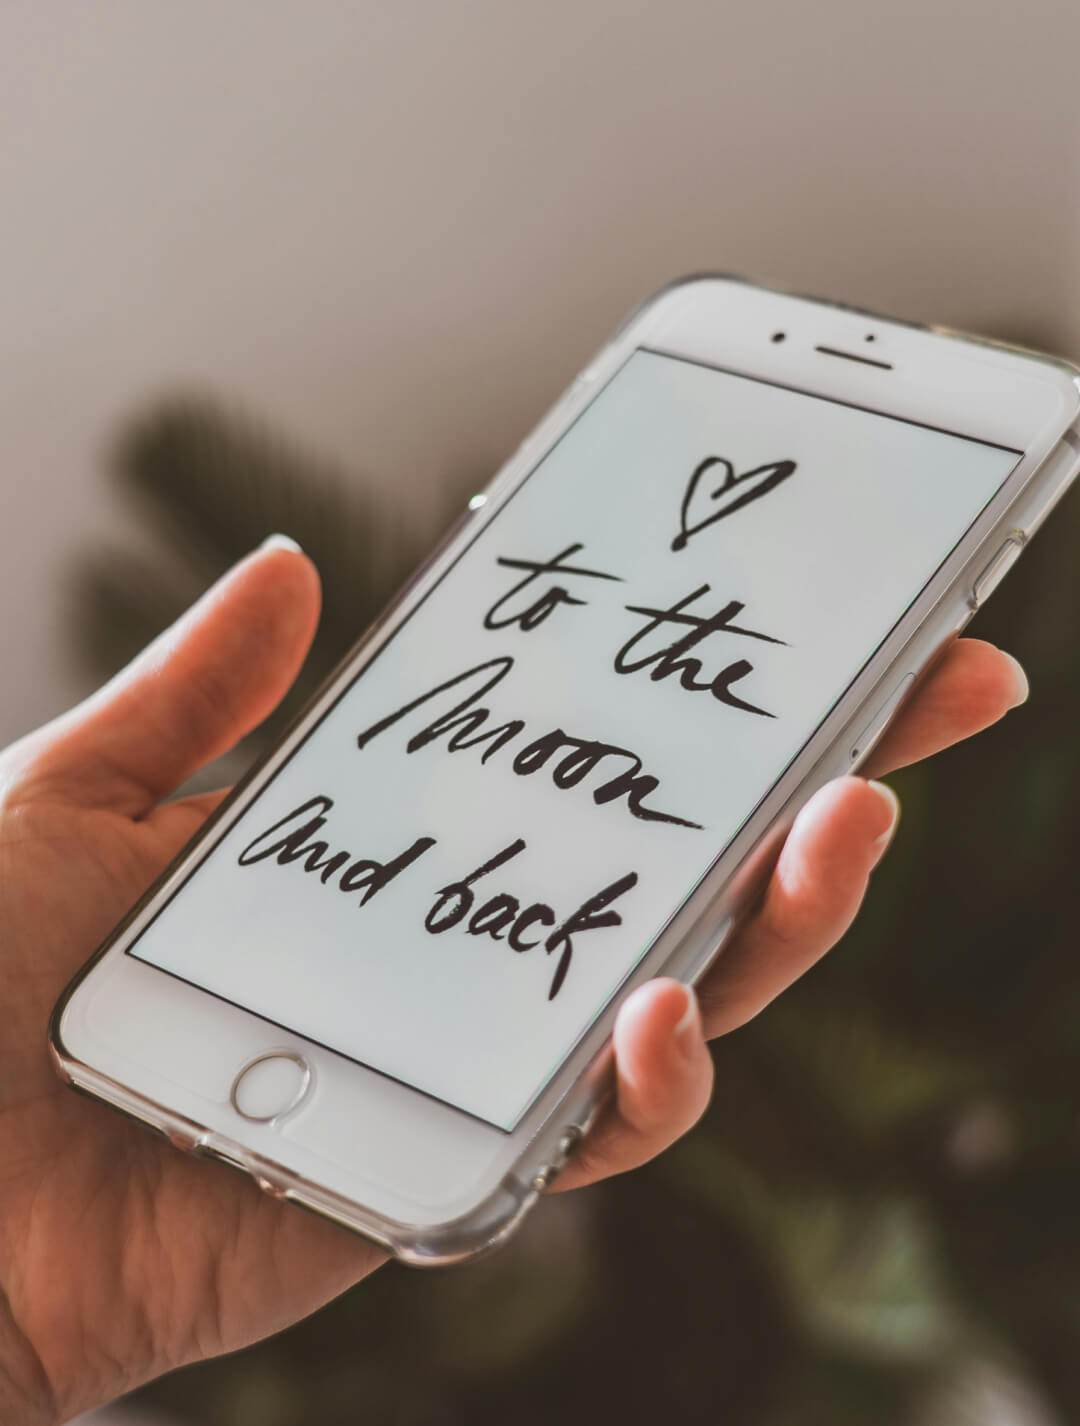 to the
Moon
and back